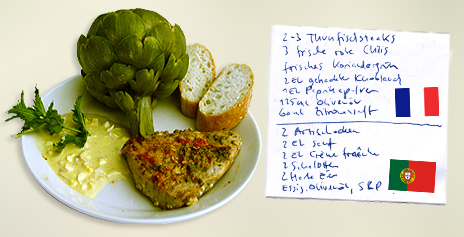 2-3 Thunfischsteaks
3 frische rote Chilis
frisches Koriandergrün
2 EL gehackter Knoblauch
1 EL Paprikapulver
125ml Olivenöl
60ml Zitronensaft
2 Artischocken
2 EL Senf
2 EL Crème fraîche
2 Schalotten
2 Harte Eier
Essig, Olivenöl, S&P